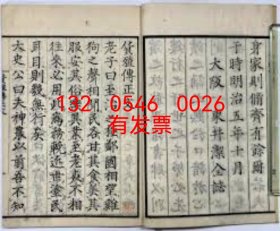 身家則脩齊有餘爾
于時明治五年十月
大阪 東井潔全誌
貨殖傳正文
老子曰至治之極鄰國相望雞
狗之聲相聞民各甘其食美其
服安其俗樂其業至老死不相
往來必用此為務輓近世塗民
耳目則幾無行矣
太史公曰夫神農以前吾不知
132 0546 0026
有发票